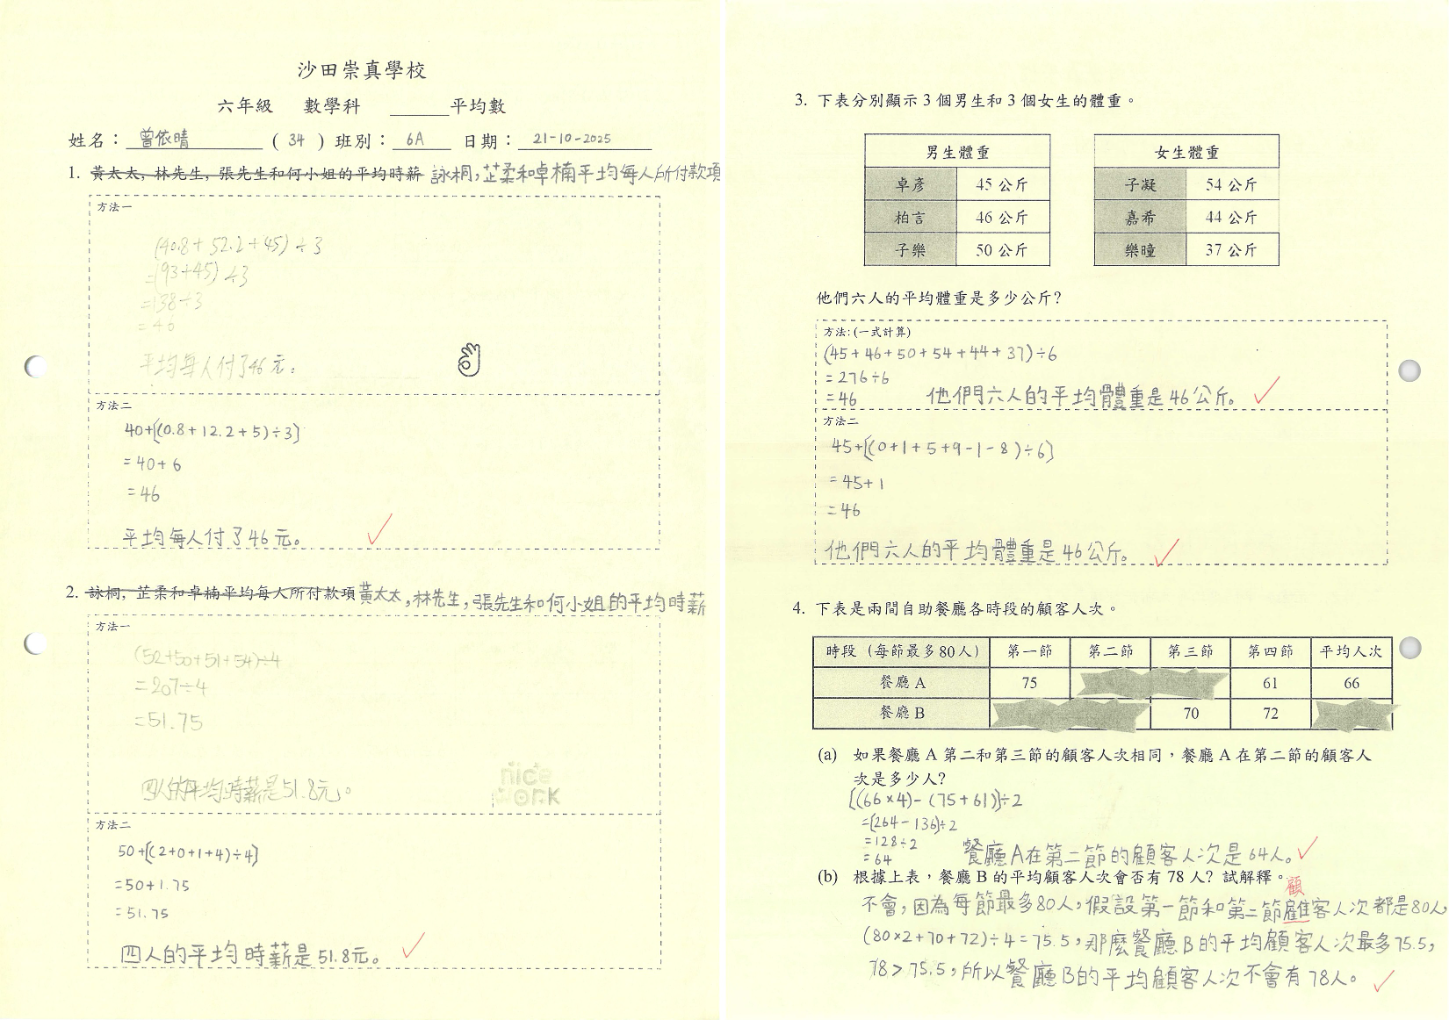 沙田崇真學校
六年級 數學科 ______平均數
姓名：曾依晴 ( 34 ) 班別：6A 日期：21-10-2025
1. 黃太太, 林先生, 張先生和何小姐的平均時薪 詠桐,芷柔和卓楠平均每人所付款項
方法一
(40.8+52.2+45)÷3
=(93+45)÷3
=138÷3
=46
平均每人付了46元。
方法二
40+[(0.8+12.2+5)÷3]
=40+6
=46
平均每人付了46元。
2. 詠桐, 芷柔和卓楠平均每人所付款項 黃太太,林先生,張先生和何小姐的平均時薪
方法一
(52+50+51+54)÷4
=207÷4
=51.75
四人的平均時薪是51.8元。
nice
work
方法二
50+[(2+0+1+4)÷4]
=50+1.75
=51.75
四人的平均時薪是51.8元。
3. 下表分別顯示 3 個男生和 3 個女生的體重。
男生體重 女生體重
卓彥 45 公斤 子凝 54 公斤
柏言 46 公斤 嘉希 44 公斤
子樂 50 公斤 樂曈 37 公斤
他們六人的平均體重是多少公斤?
方法:(一式計算)
(45+46+50+54+44+37)÷6
=276÷6
=46 他們六人的平均體重是46公斤。
方法二
45+[(0+1+5+9-1-8)÷6]
=45+1
=46
他們六人的平均體重是46公斤。
4. 下表是兩間自助餐廳各時段的顧客人次。
時段（每節最多80人） 第一節 第二節 第三節 第四節 平均人次
餐廳 A 75 61 66
餐廳 B 70 72
(a) 如果餐廳 A 第二和第三節的顧客人次相同，餐廳 A 在第二節的顧客人
次是多少人?
[(66×4)-(75+61)]÷2
=(264-136)÷2
=128÷2
=64 餐廳A在第二節的顧客人次是64人。
(b) 根據上表，餐廳 B 的平均顧客人次會否有 78 人? 試解釋。
顧
不會,因為每節最多80人,假設第一節和第二節雇客人次都是80人,
(80×2+70+72)÷4=75.5,那麼餐廳B的平均顧客人次最多75.5,
78>75.5,所以餐廳B的平均顧客人次不會有78人。